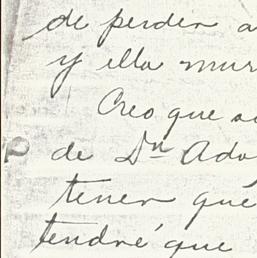 de perder a
y ella mur
Creo que s
de Dn Ado
tener qué
tendré que